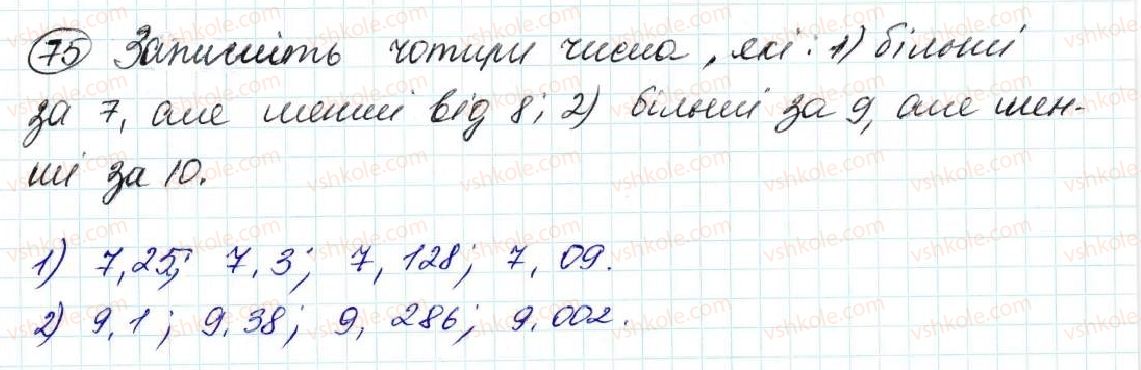 75 Запишіть чотири числа, які: 1) більші
за 7, але менші від 8; 2) більші за 9, але мен-
ші за 10.
1) 7,25; 7,3; 7,128; 7,09.
2) 9,1; 9,38; 9,286; 9,002.